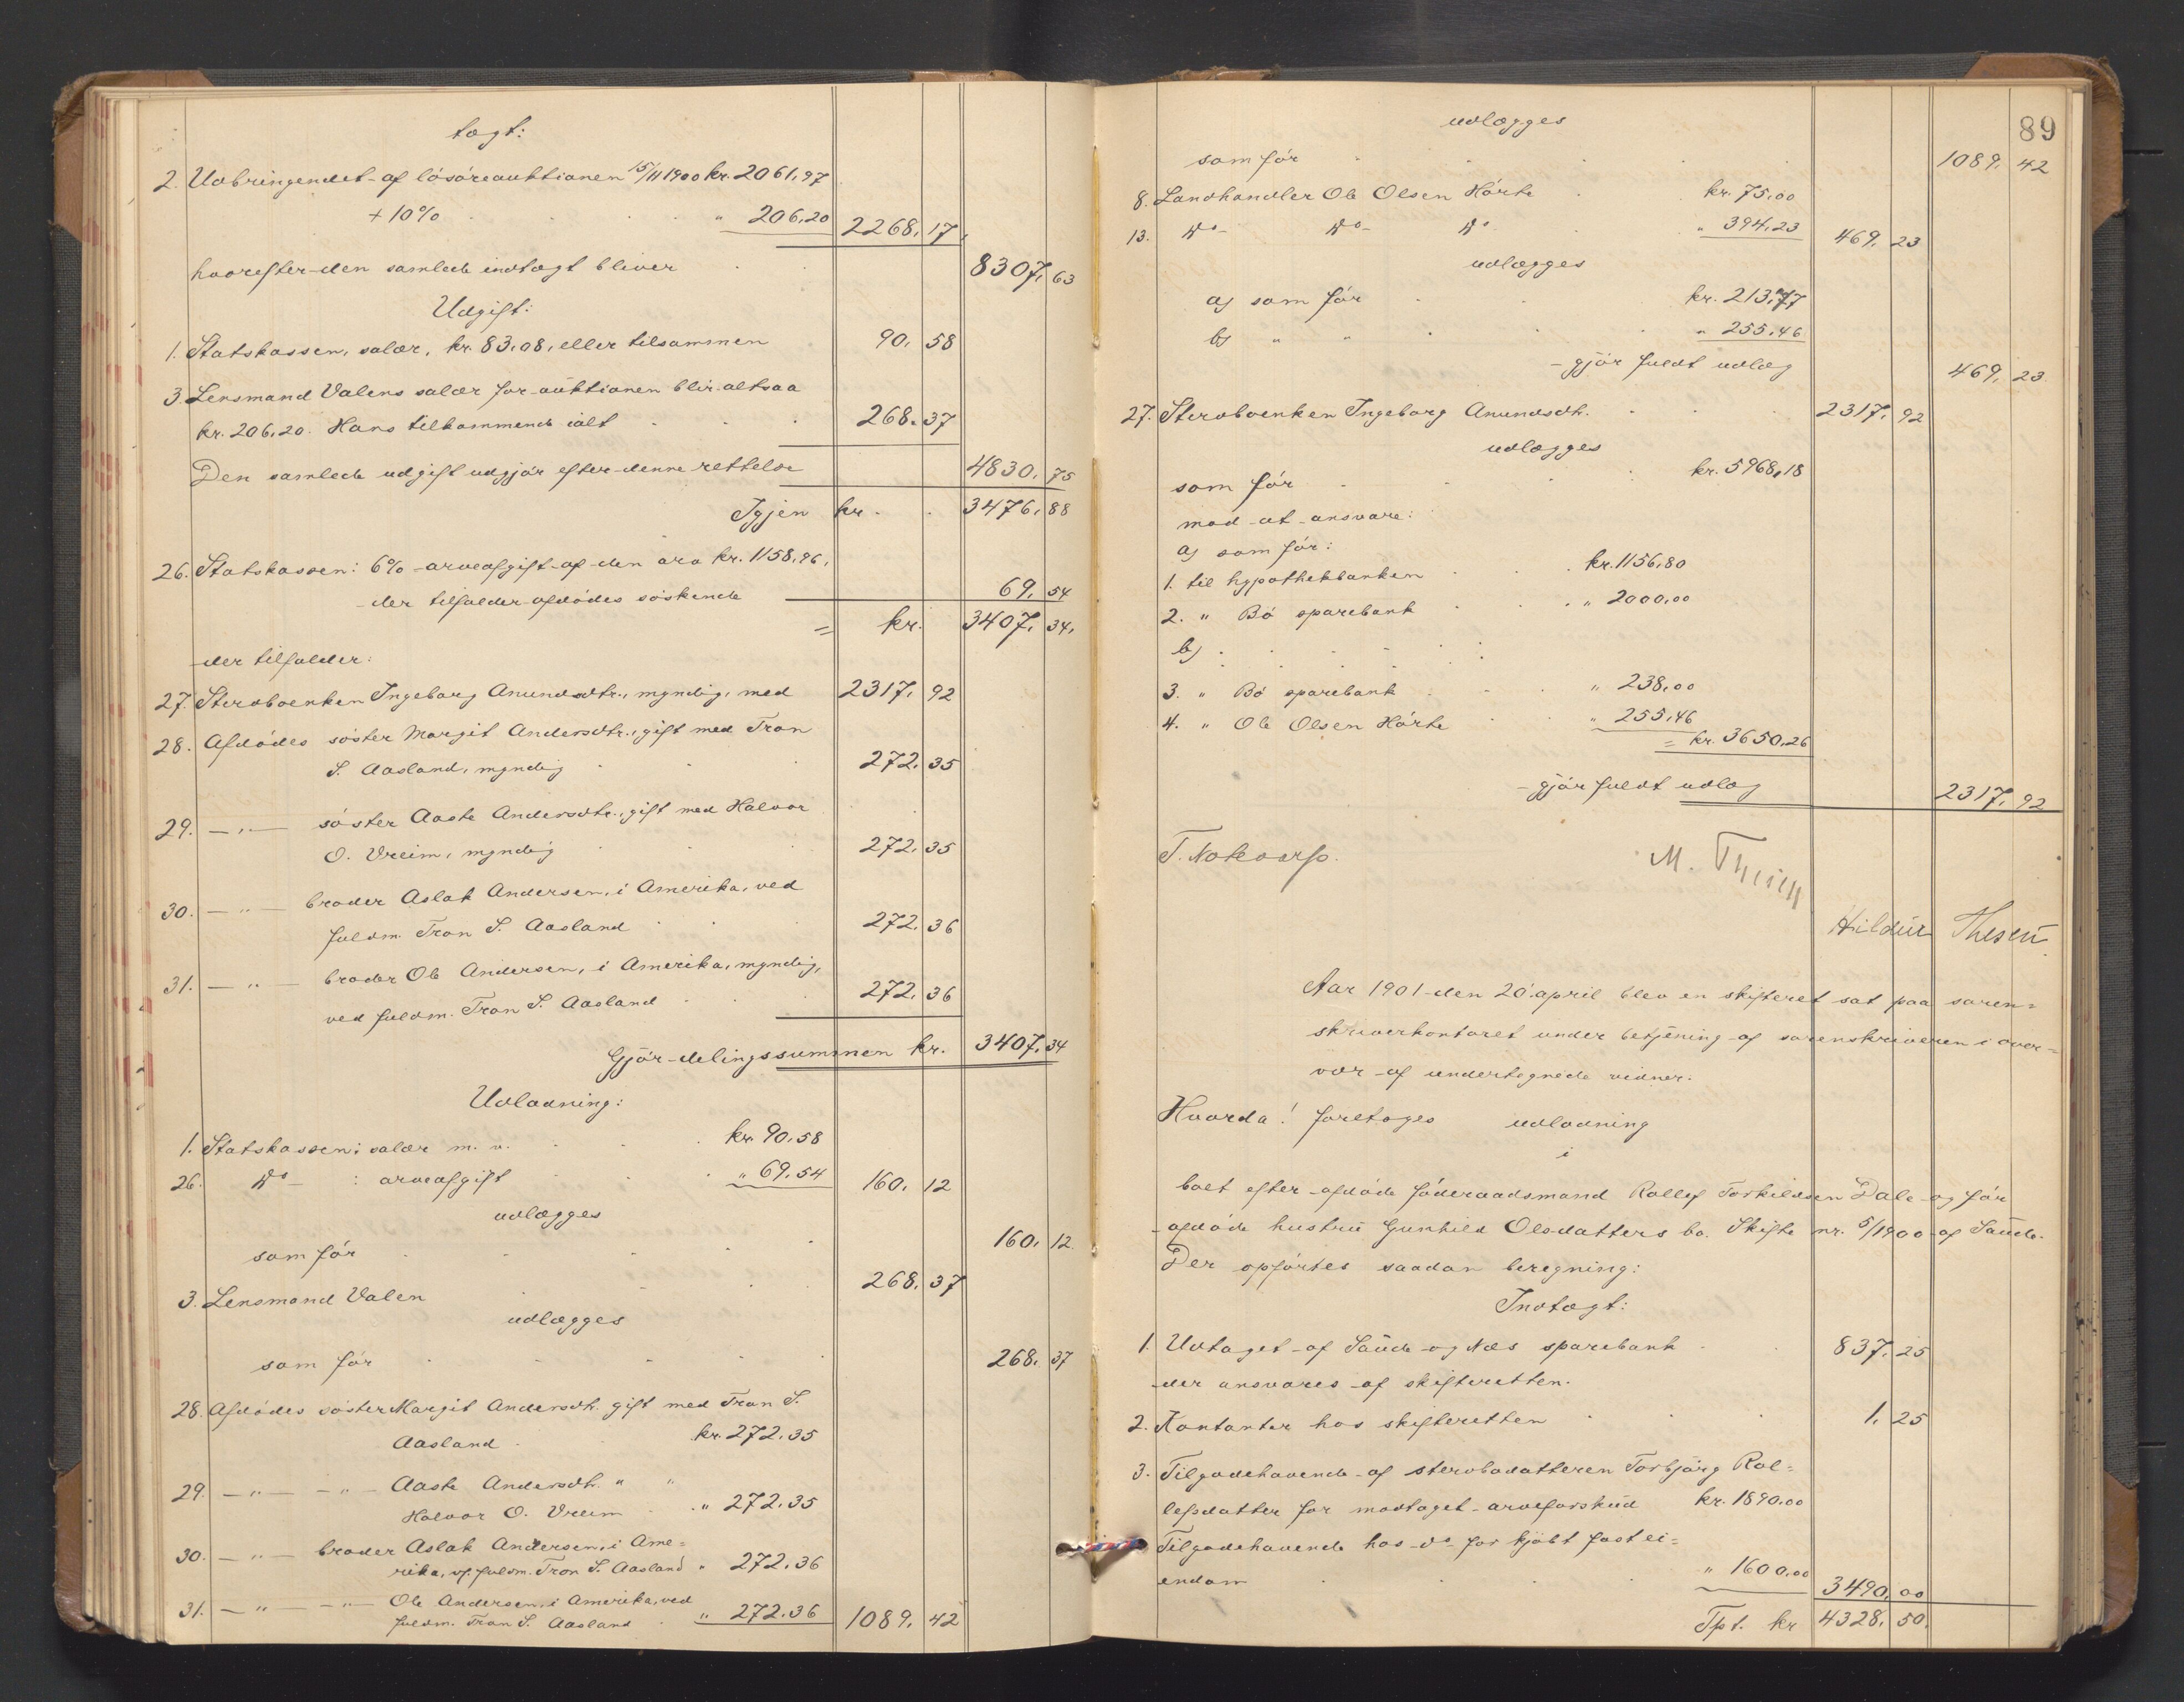 tægt:
2. Udbringendet af løsøreauktionen 15/11 1900 kr. 2061,97
+ 10% " 206,20 2268, 17,
hvorefter den samlede indtægt bliver 8307, 63
Udgift:
1. Statskassen, salær, kr. 83,08, eller tilsammen 90, 58
3. Lensmand Valens salær for auktionen blir altsaa
kr. 206,20. Hans tilkommende ialt 268. 37
Den samlede udgift udgjør efter denne rettelse 4830, 75
Igjen kr. 3476, 88
26. Statskassen: 6% arveafgift af den arv kr. 1158,96,
der tilfalder afdødes søskende 69, 54
= kr. 3407, 34,
der tilfalder:
27. Stervboenken Ingeborg Anundsdtr., myndig, med 2317, 92
28. Afdødes søster Margit Andersdtr., gift med Tron
S. Aasland, myndig 272, 35
29. — " — søster Aaste Andersdtr., gift med Halvor
O. Vreim, myndig 272, 35
30. — " — broder Aslak Andersen, i Amerika, ved
fuldm. Tron S. Aasland 272, 36
31. — " — broder Ole Andersen, i Amerika, myndig,
ved fuldm. Tron S. Aasland 272, 36
Gjør delingssummen kr. 3407, 34
Udlodning:
1. Statskassen: salær m. v. kr. 90,58
26. Do : arveafgift " 69,54 160, 12
udlægges
som før 160, 12.
3. Lensmand Valen 268, 37
udlægges
som før 268, 37
28. Afdødes søster Margit Andersdtr. gift med Tron S.
Aasland kr. 272.35
29. — " — — " — Aaste Andersdtr. " "
Halvor O. Vreim " 272.35
30. — " — broder Aslak Andersen, i Ame=
rika, v. fuldm. Tron S. Aasland " 272,36
31. — " — — " — Ole Andersen, i Amerika, ved
fuldm. Tron S. Aasland " 272.36 1089, 42
89
udlægges
som før 1089, 42
8. Landhandler Ole Olsen Hørte kr. 75,00
13. Do Do Do " 394,23 469, 23
udlægges
a) som før kr. 213,77
b) " " " 255,46
gjør fuldt udlæg 469, 23.
27. Stervboenken Ingeborg Anundsdtr. 2317, 92
udlægges
som før kr. 5968,18
mod at ansvare:
a) som før:
1. til hypothekbanken kr. 1156,80
2. " Bø sparebank " 2000,00
b)
3. " Bø sparebank " 238,00
4. " Ole Olsen Hørte " 255,46
= kr. 3650,26
gjør fuldt udlæg 2317, 92
M. Thesen
Hildur Thesen
Aar 1901 den 20' april blev en skifteret sat paa soren=
skriverkontoret under betjening af sorenskriveren i over=
vær af undertegnede vidner.
Hvorda! foretoges udlodning
i
boet efter afdøde føderaadsmand Rollef Torkildsen Dale og før
afdøde hustru Gunhild Olsdatters bo. Skifte nr. 5/1900 af Saude.
Der opførtes saadan beregning:
Indtægt:
1. Udtaget af Saude og Næs sparebank 837, 25
der ansvares af skifteretten.
2. Kontanter hos skifteretten 1, 25
3. Tilgodehavende af stervbodatteren Torbjørg Rol=
lefsdatter for modtaget arveforskud kr. 1890.00
Tilgodehavende hos do for kjøbt fast ei=
endom " 1600,00 3490, 00
Tpt. kr 4328, 50.